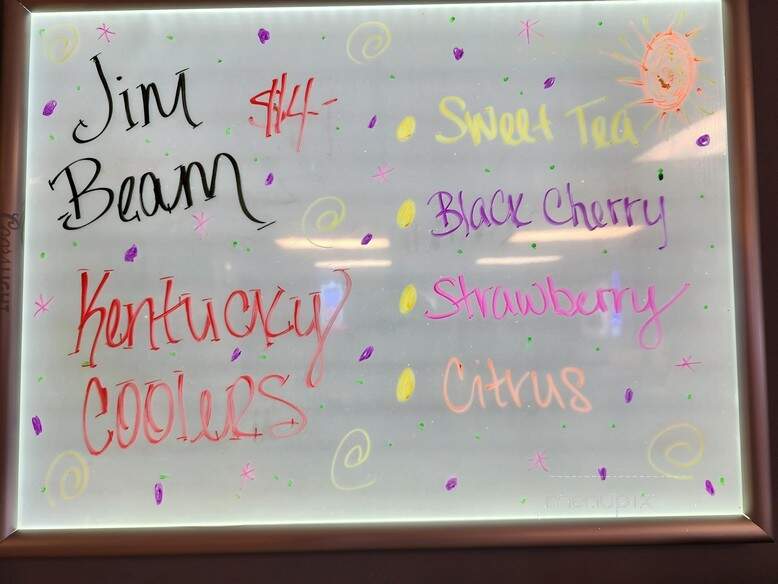 Jim $14-
Beam
Kentucky
Coolers
Sweet Tea
Black Cherry
Strawberry
Citrus
menupix